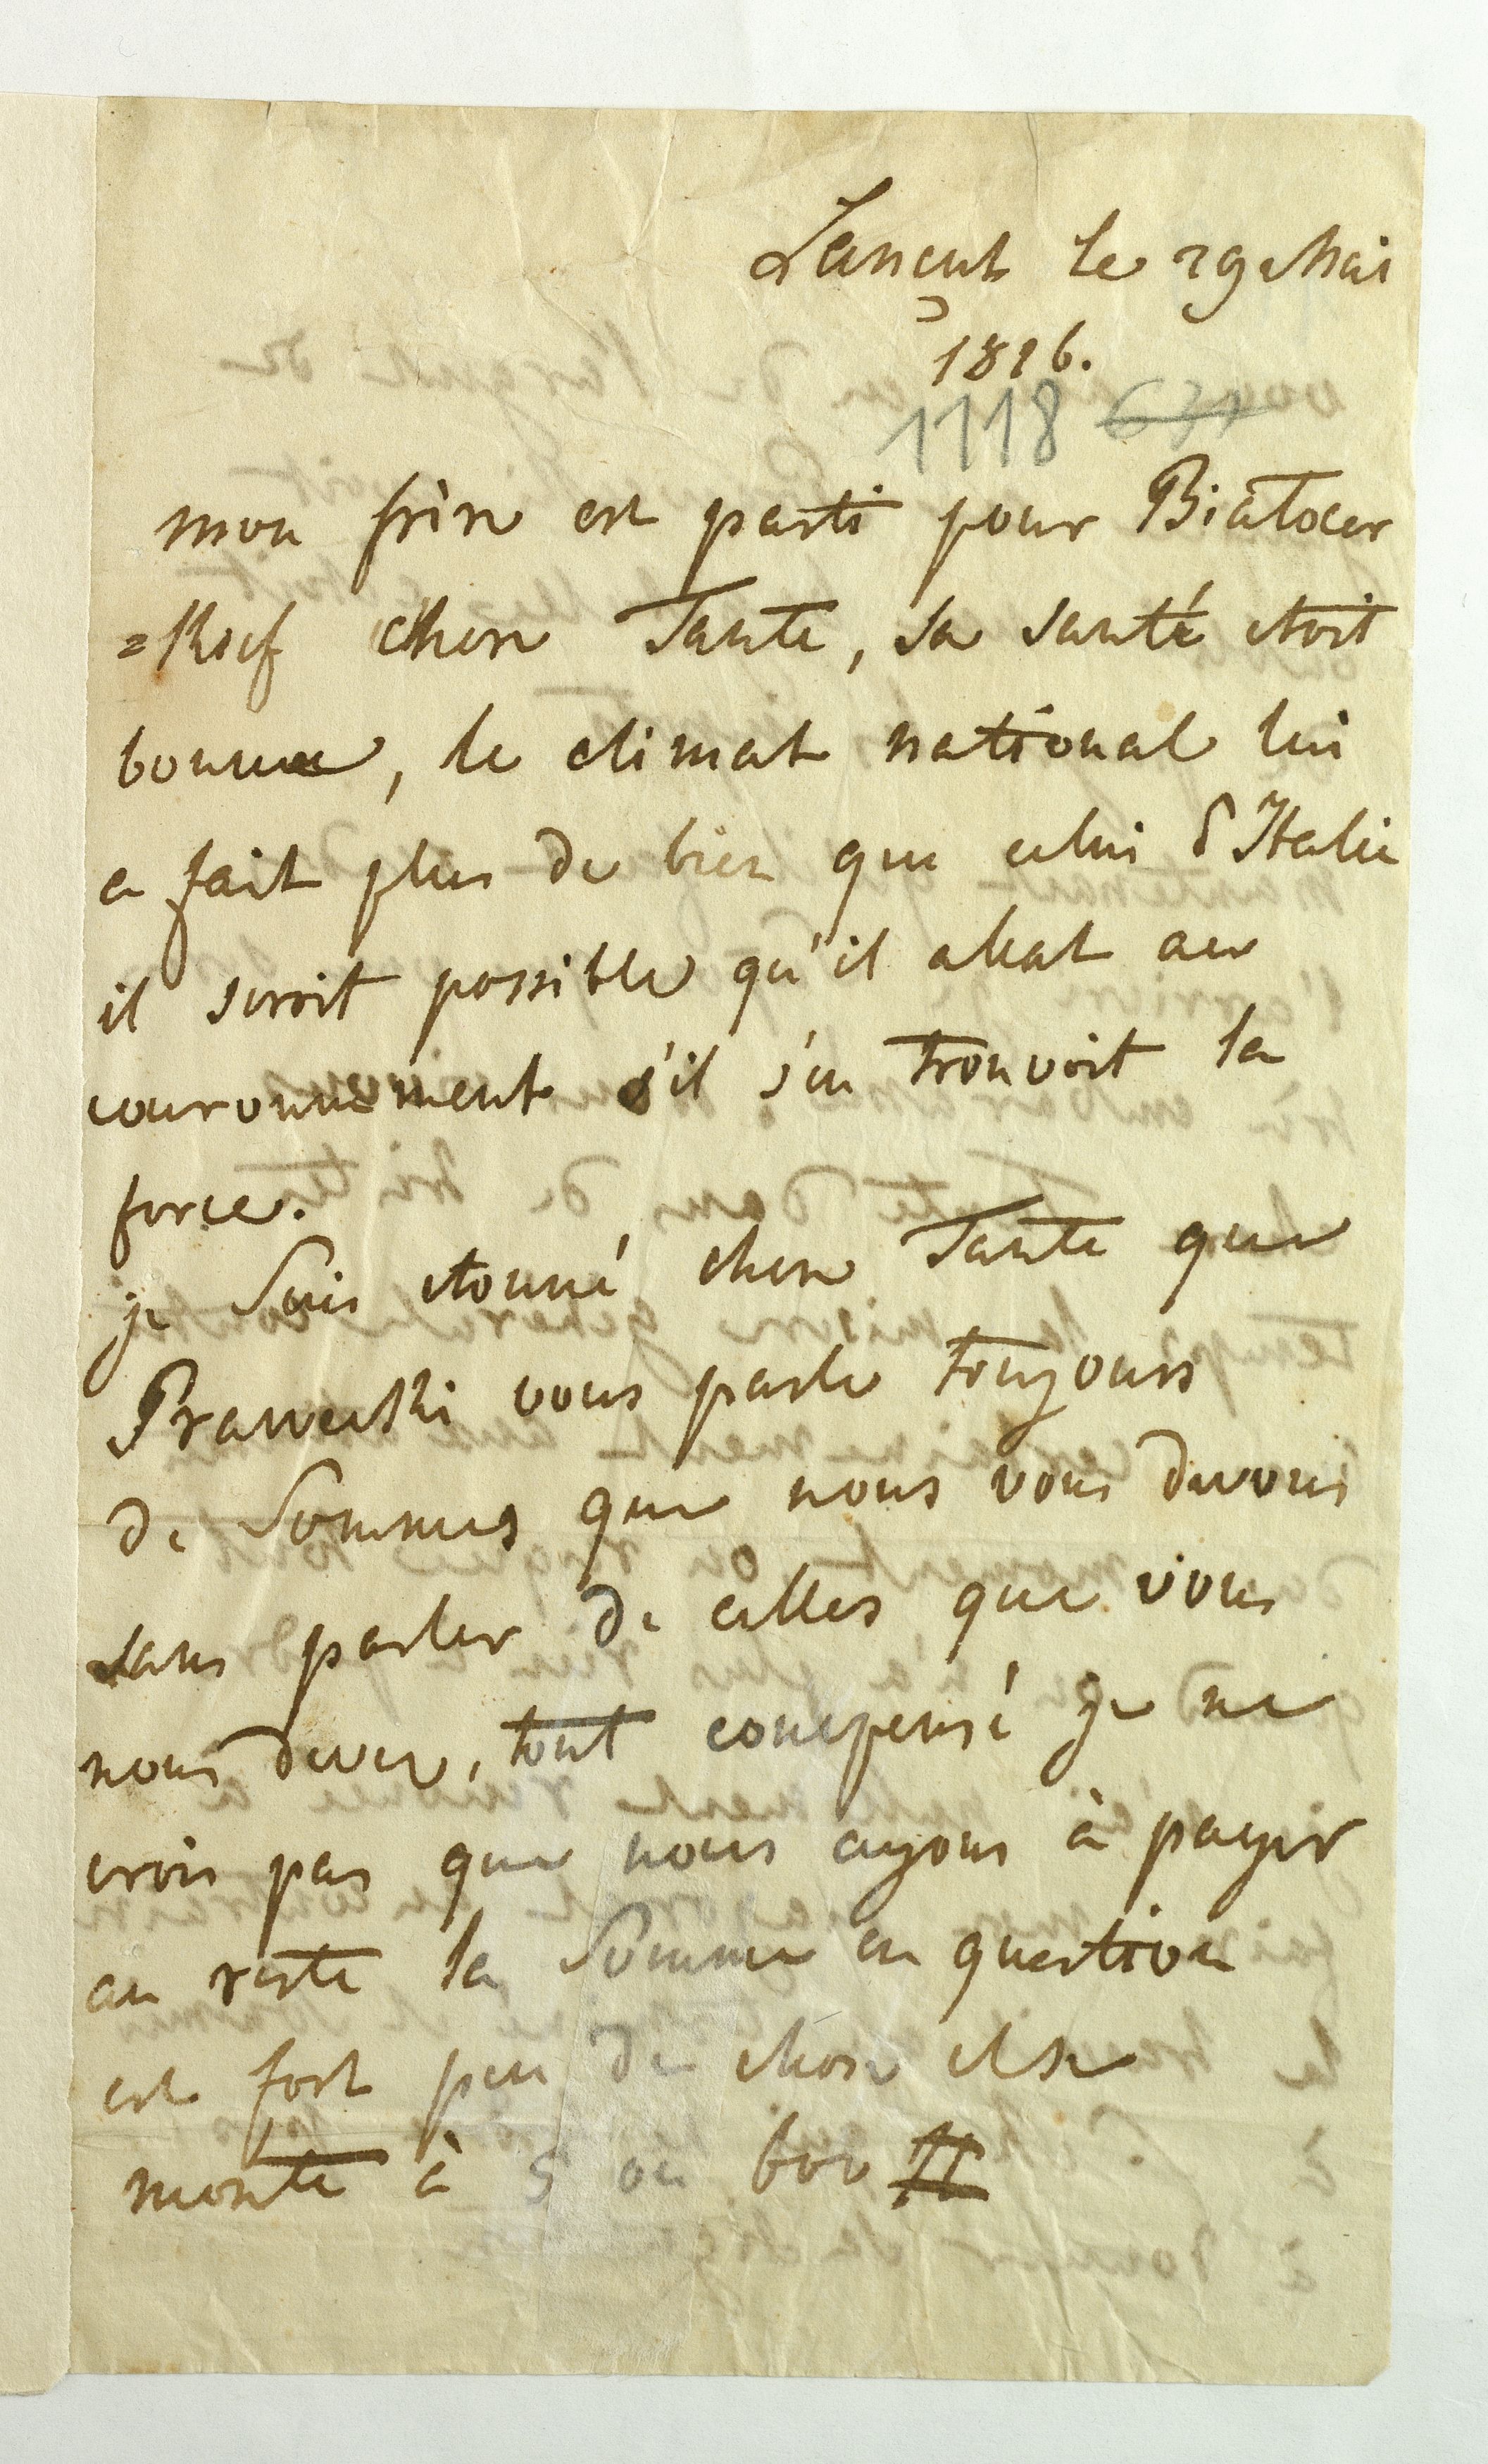 Lancut le 29 Mai
1826.
1118 631
mon frere est parti pour Biatocer
=Kief chere Tante, sa santé etoit
bonne, le climat national lui
a fait plus de bien que celui d'Italie
il seroit possible qu'il allat au
couronnement s'il s'en trouvoit la
force.
je suis etonné chere Tante que
Prawecki vous parle toujours
de sommes que nous vous devons
sans parler de celles que vous
nous devez, tout compensé je ne
crois pas que nous ayons à payer
au reste la somme en question
est fort peu de chose elle se
monte à 5 ou 600 #